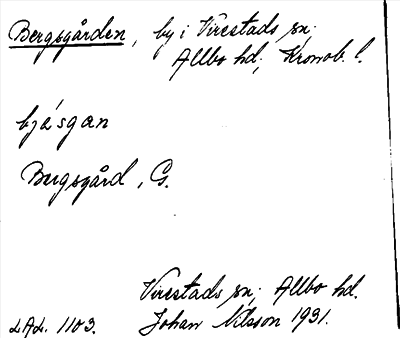 Bergsgården, by i Virestads sn;
Allbo hd; Kronob. l.
bjásgan
Bergsgård, G.
Virestads sn; Allbo hd.
LAL. 1103. Johan Nilsson 1931.